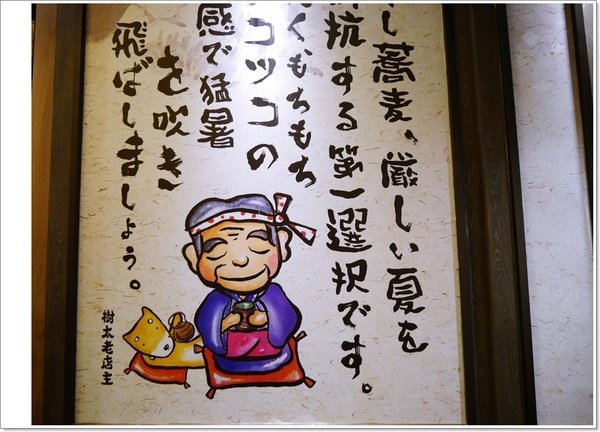 し蕎麦、厳しい夏を
抗する第一選択です。
くもちもち
コツコの
感で猛暑
を吹き
飛ばしましょう。
樹太老店主